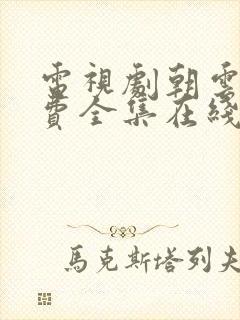 電視劇朝雲
費全集在綫
馬克斯塔列夫